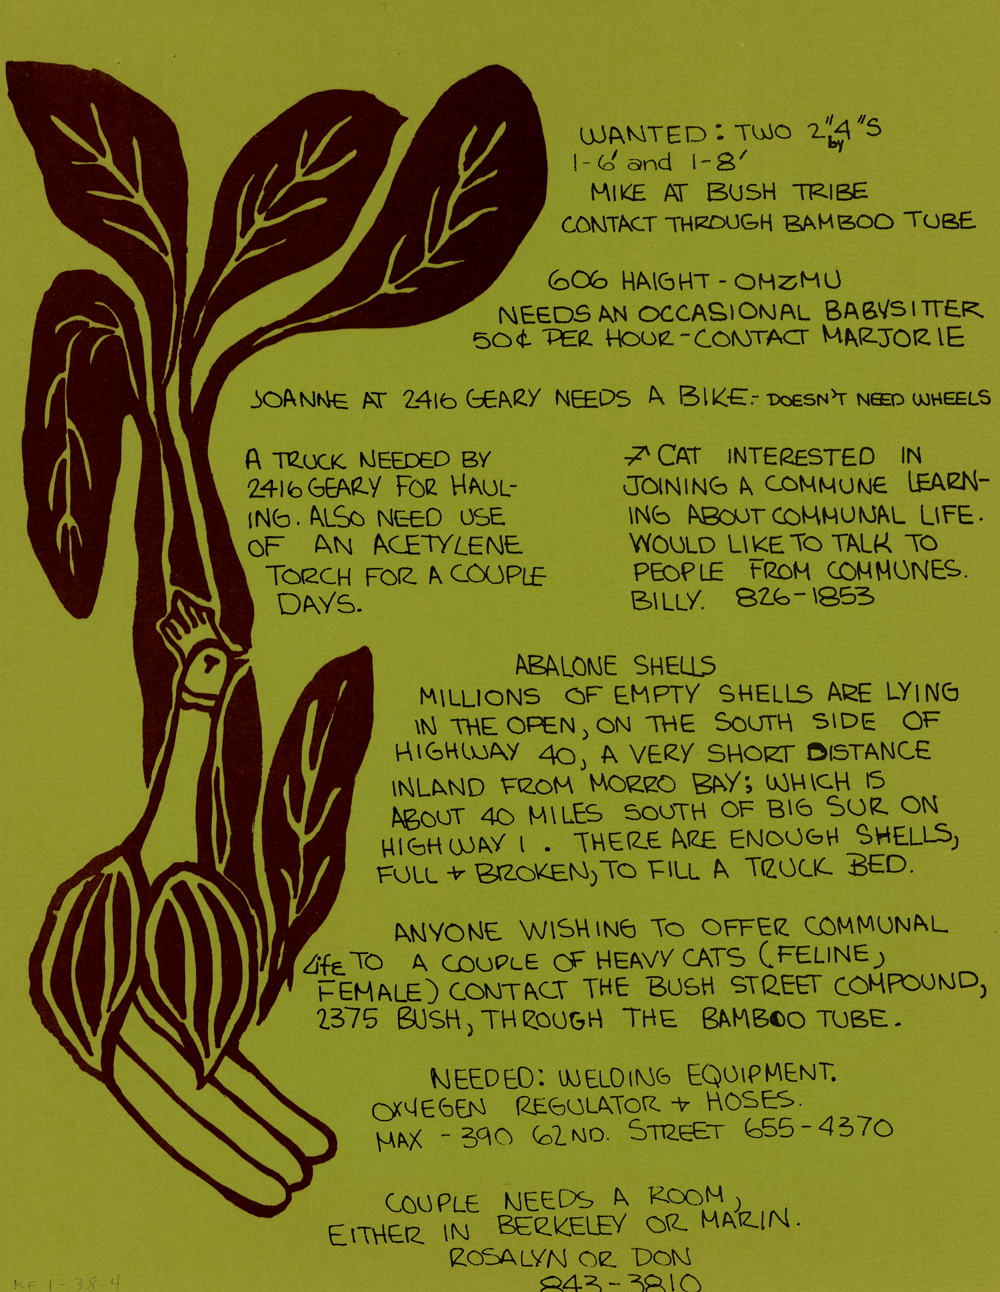 WANTED: TWO 2" by 4"S
1-6' and 1-8'
MIKE AT BUSH TRIBE
CONTACT THROUGH BAMBOO TUBE
606 HAIGHT - OMZMU
NEEDS AN OCCASIONAL BABYSITTER
50¢ PER HOUR - CONTACT MARJORIE
JOANNE AT 2416 GEARY NEEDS A BIKE - DOESN'T NEED WHEELS
A TRUCK NEEDED BY
2416 GEARY FOR HAUL-
ING. ALSO NEED USE
OF AN ACETYLENE
TORCH FOR A COUPLE
DAYS.
↗ CAT INTERESTED IN
JOINING A COMMUNE LEARN-
ING ABOUT COMMUNAL LIFE.
WOULD LIKE TO TALK TO
PEOPLE FROM COMMUNES.
BILLY. 826-1853
ABALONE SHELLS
MILLIONS OF EMPTY SHELLS ARE LYING
IN THE OPEN, ON THE SOUTH SIDE OF
HIGHWAY 40, A VERY SHORT DISTANCE
INLAND FROM MORRO BAY; WHICH IS
ABOUT 40 MILES SOUTH OF BIG SUR ON
HIGHWAY 1. THERE ARE ENOUGH SHELLS,
FULL + BROKEN, TO FILL A TRUCK BED.
ANYONE WISHING TO OFFER COMMUNAL
Life TO A COUPLE OF HEAVY CATS (FELINE,
FEMALE) CONTACT THE BUSH STREET COMPOUND,
2375 BUSH, THROUGH THE BAMBOO TUBE.
NEEDED: WELDING EQUIPMENT.
OXYEGEN REGULATOR + HOSES.
MAX - 390 62ND. STREET 655-4370
COUPLE NEEDS A ROOM,
EITHER IN BERKELEY OR MARIN.
ROSALYN OR DON
843-3810
KF 1-38-4